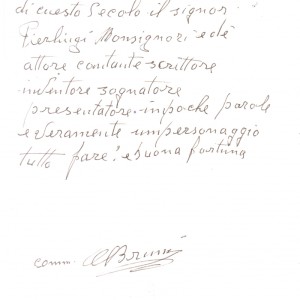 di questo secolo il signor
Pierluigi Monsignori ed è
attore cantante scrittore
inventore sognatore
presentatore in poche parole
e veramente un personaggio
tutto fare! e buona fortuna
comm. Bruni